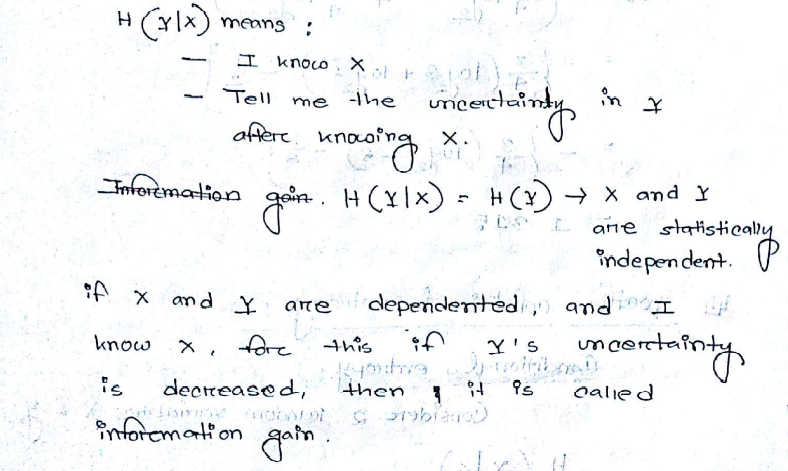 H(Y|X) means :
— I know X.
— Tell me the uncertainty in Y
after knowing X.
Information gain. H(Y|X) = H(Y) → X and Y
are statistically
independent.
if X and Y are dependented, and I
know X, for this if Y's uncertainty
is decreased, then it is called
information gain.